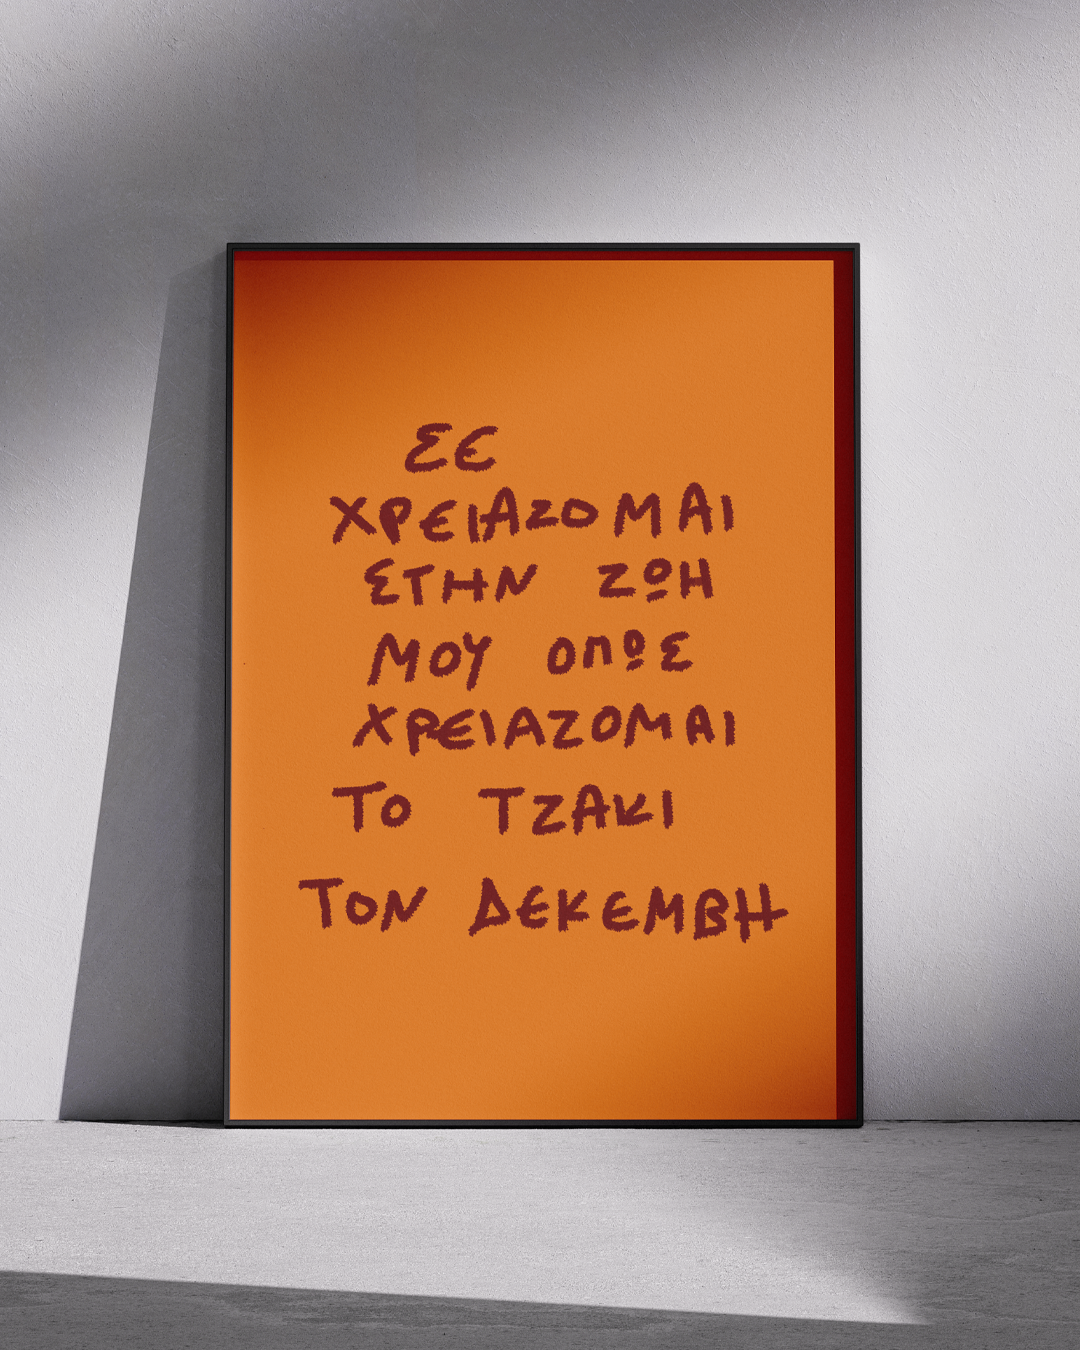 ΣΕ
ΧΡΕΙΑΖΟΜΑΙ
ΣΤΗΝ ΖΩΗ
ΜΟΥ ΟΠΩΣ
ΧΡΕΙΑΖΟΜΑΙ
ΤΟ ΤΖΑΚΙ
ΤΟΝ ΔΕΚΕΜΒΗ